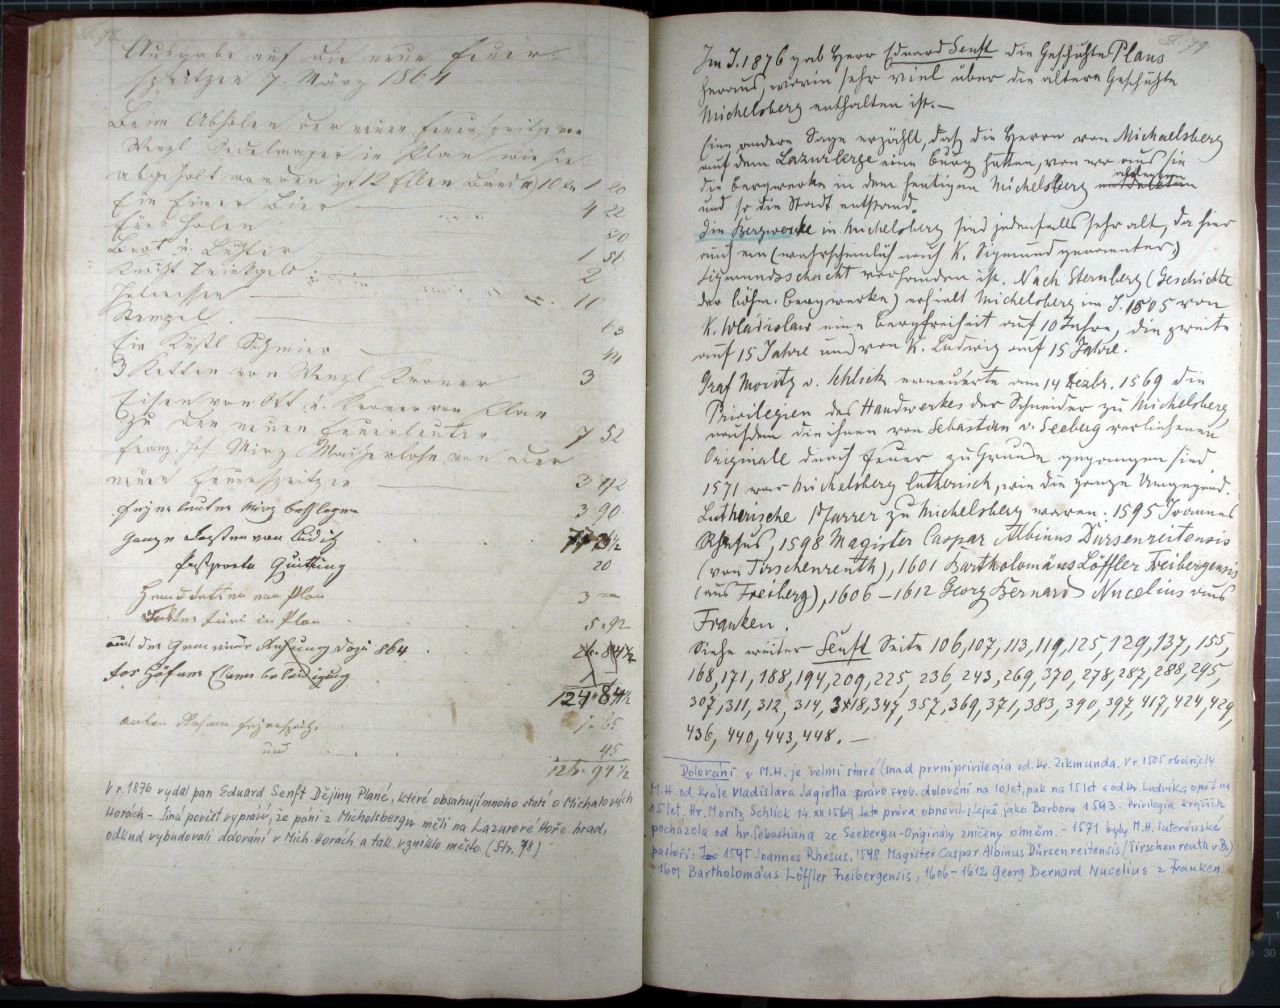 Ausgabe auf die neue Feuer-
spritzen 7. März 1864
Beim Abholen der neuen Feuerspritze von
Wenzl Sedelmayer in Plan wie sie
abgeholt worden ist 12 Ellen Band a 10 kr 1 20
Ein Eimer Bier 4 22
Fürs holen 20
Brot u. 1 51
Knecht Trinkgeld 2
10
Stempel 63
Ein Küstl Schmier 44
3 Ketten von Wenzl Kroner 3
Eisen von Ott u. Kroner von Plan
zu der neuen Feuerleuter 7 52
Franz Jos. Macherlohn von der
neuen Feuerspritzen 3
Feyerleuter beschlagen 3 90
Quittung 20
in Plan 3 —
in Plan 5 92
aus der Gemeinde 864 26 84½
124 84½
Anton Feyerspritz 1 65
und 45
126 94½
V r. 1876 vydal pan Eduard Senft Dějiny Plané, které obsahují mnoho statí o Michalových
Horách - Jiná pověst vypráví, že páni z Michelsbergu měli na Lazurové Hoře hrad,
odkud vybudovali dolování v Mich. Horách a tak vzniklo město. (Str. 78)
S. 79
Im J. 1876 gab Herr Eduard Senft die Geschichte Plans
heraus, worin sehr viel über die ältere Geschichte
Michelsberg enthalten ist. —
Eine andere Sage erzählt, daß die Herrn von Michaelsberg
auf dem Lazurberge eine Burg hatten, von wo aus sie
die Bergwerke in dem heutigen Michelsberg anlegten
und so die Stadt entstand.
Die Bergwerke in Michelsberg sind jedenfalls sehr alt, da hier
auch ein (wahrscheinlich nach K. Sigmund genannter)
Sigmundsschacht vorhanden ist. Nach Sternberg (Geschichte
der böhm. Bergwerke) erhielt Michelsberg im J. 1505 von
K. Wladislaw eine Bergfreiheit auf 10 Jahre, die zweite
auf 15 Jahre und von K. Ludwig auf 15 Jahre.
Graf Moritz v. Schlick erneuerte am 14 Dezbr. 1569 die
Privilegien des Handwerkes der Schneider zu Michelsberg,
nachdem die ihnen von Sebastian v. Seeberg verliehenen
Originale durch Feuer zu Grunde gegangen sind.
1571 war Michelsberg lutherisch, wie die ganze Umgegend.
Lutherische Pfarrer zu Michelsberg waren: 1595 Joannes
Rhesus, 1598 Magister Caspar Albinus Dürsenreitensis
(von Tirschenreuth), 1601 Bartholomäus Löffler Freibergensis
(aus Freiberg), 1606–1612 Georg Bernard Nucelius aus
Franken.
Siehe weiter Senft Seite 106, 107, 113, 119, 125, 129, 137, 155,
168, 171, 188, 194, 209, 225, 236, 243, 269, 270, 278, 287, 288, 295,
307, 311, 312, 314, 318, 347, 357, 369, 371, 383, 390, 397, 417, 424, 429,
436, 440, 443, 448. —
Dolování v M.H. je velmi staré (snad první privilegia od kr. Zikmunda. V r. 1505 obdržely
M.H. od krále Vladislava Jagiella právo svob. dolování na 10 let, pak na 15 let a od kr. Ludvíka opět na
15 let. Hr. Moritz Schlick 14. XII 1569 tato práva obnovil stejně jako Barbora 1593. Privilegia krejčích
pocházela od hr. Sebastiana ze Seebergu - Originály zničeny ohněm. - 1571 byly M.H. luteránské
pastoři: 1595 Joannes Rhesus, 1598 Magister Caspar Albinus Dürsenreitensis (Tirschenreuth v B.)
1601 Bartholomäus Löffler Freibergensis, 1606-1612 Georg Bernard Nucelius z Franken